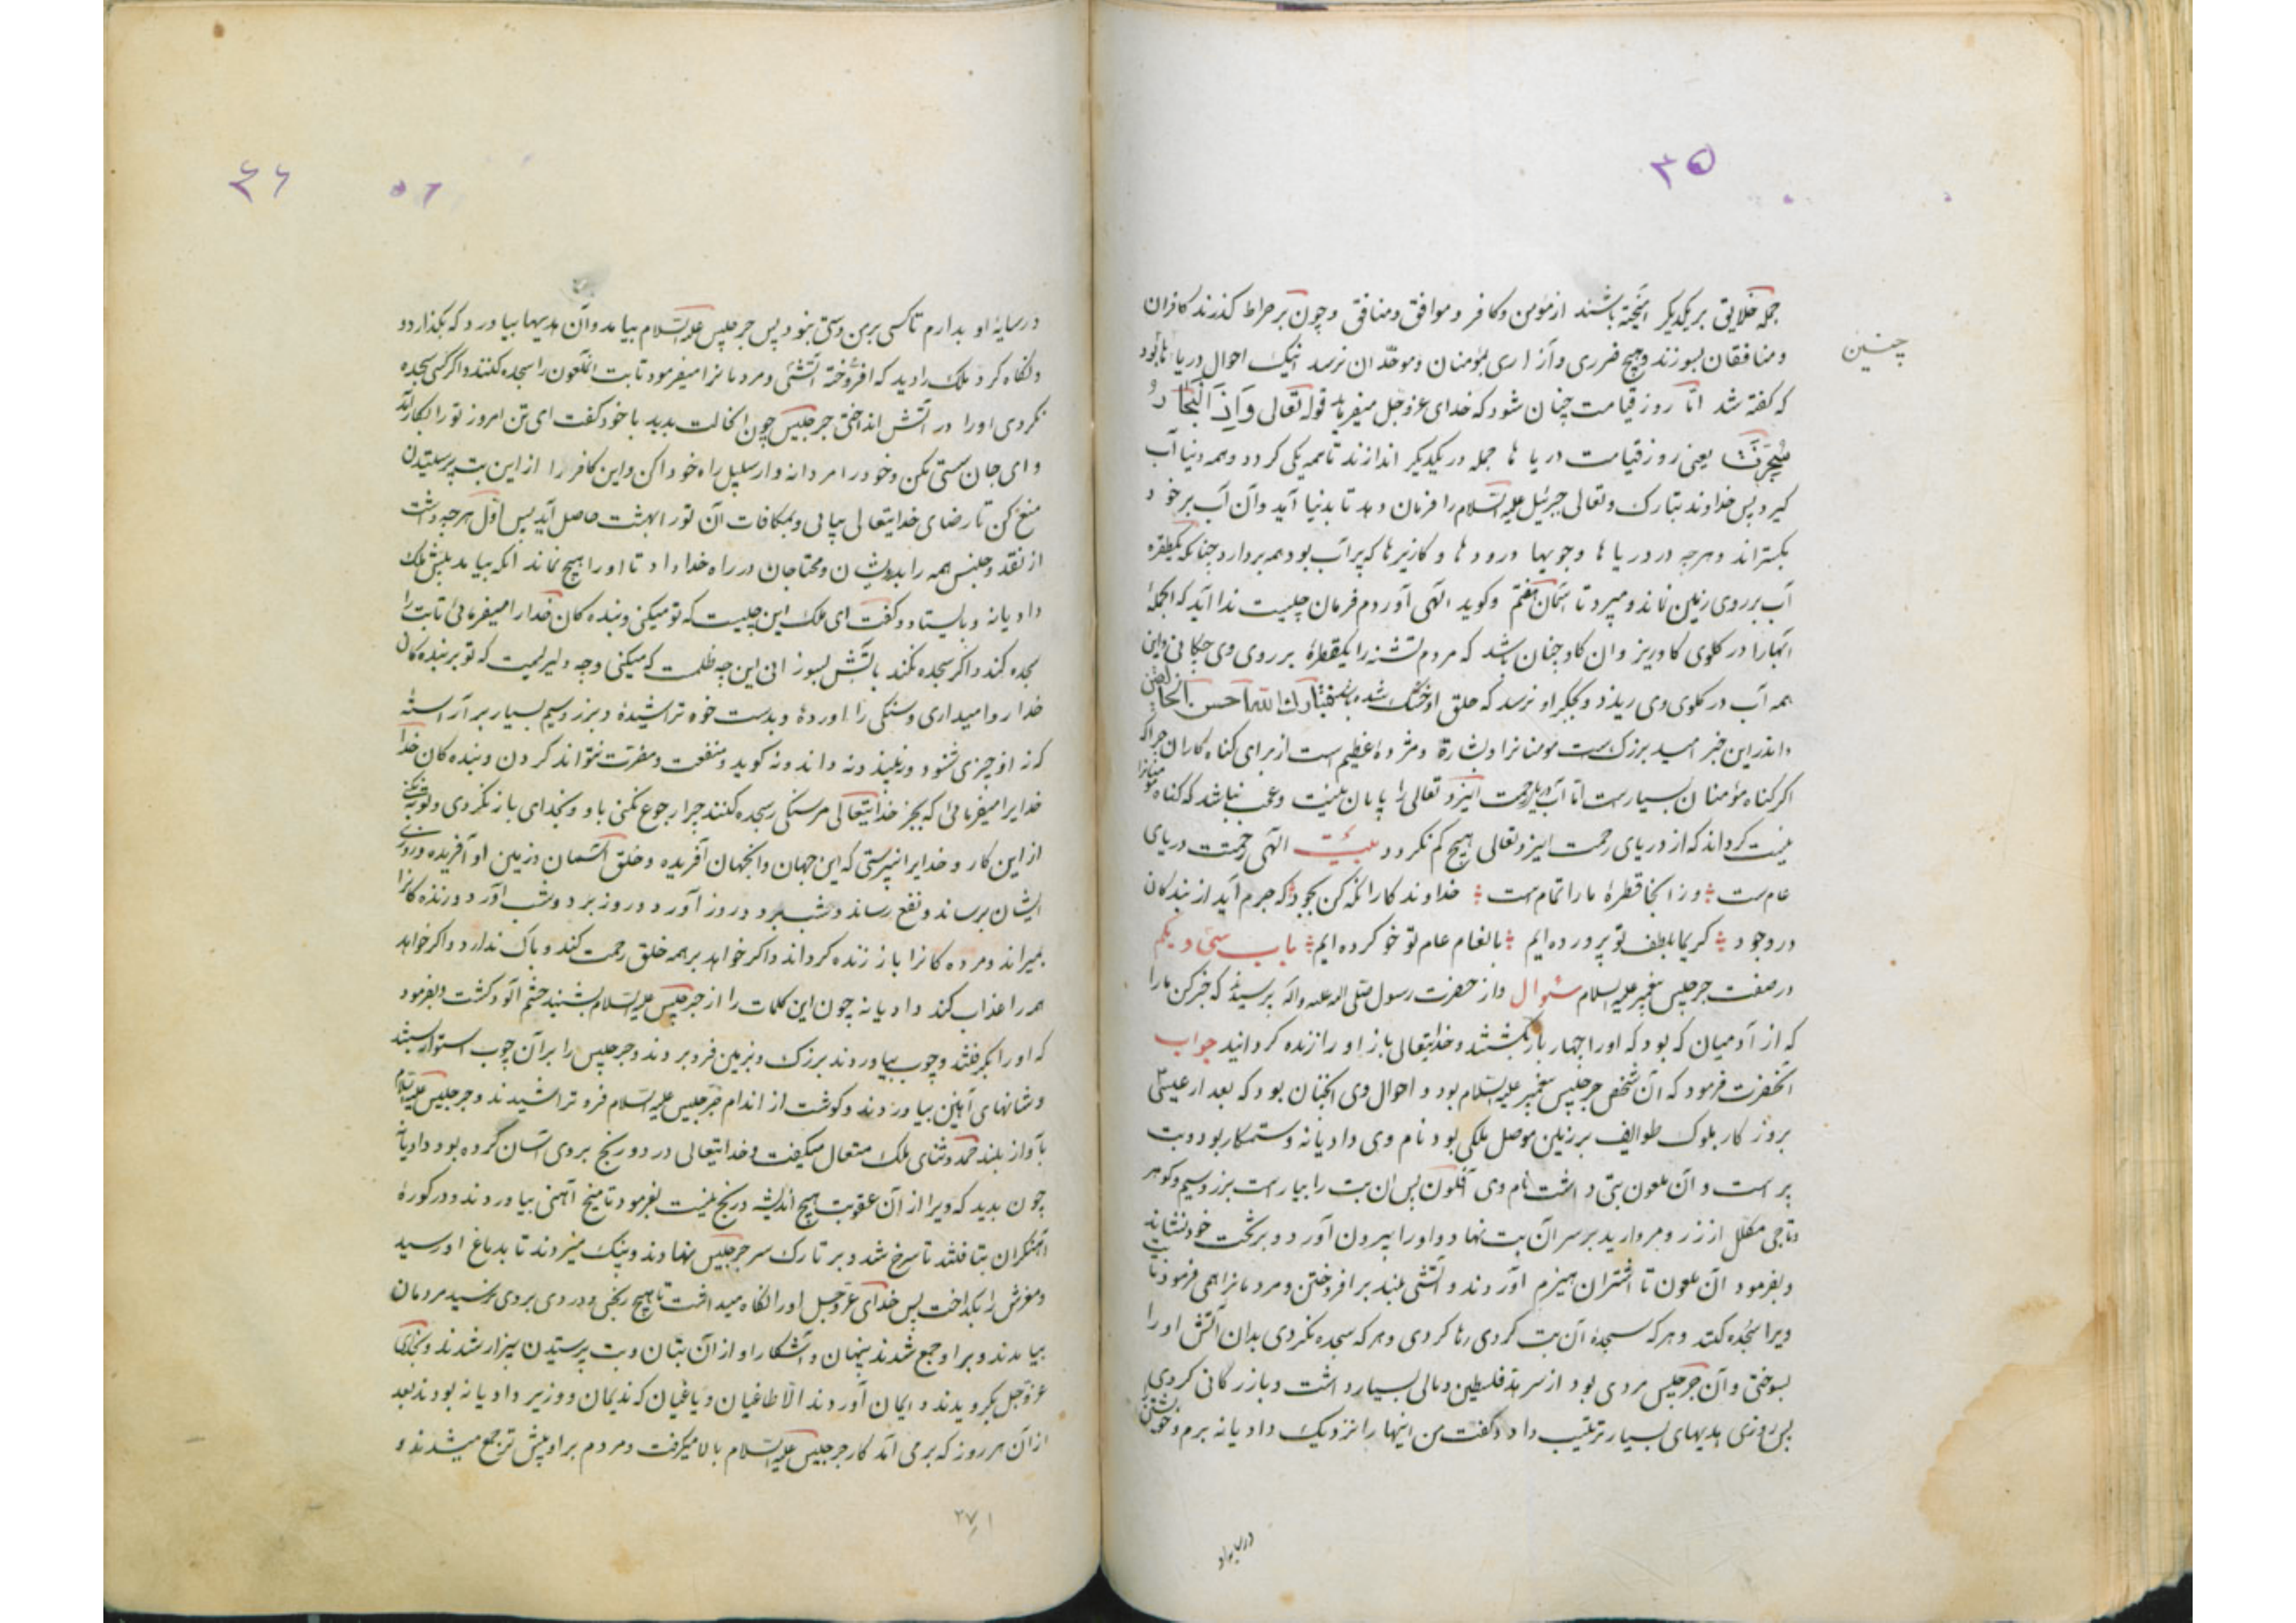 ۳۵
جمله خلایق بر یکدیگر آمیخته باشند از مؤمن و کافر و موافق و منافق و چون بر صراط گذرند کافران
چنین
و منافقان بسوزند و هیچ ضرری و آزاری بمؤمنان و موحّدان نرسد اینک احوال دریا
که گفته شد امّا روز قیامت چنان شود که خدای عزوجل میفرماید قوله تعالی وَاِذَ الْبِحَارُ
سُجِّرَتْ یعنی روز قیامت دریا ها جمله در یکدیگر اندازند تا همه یکی گردد و همه دنیا آب
گیرد پس خداوند تبارک و تعالی جبرئیل علیه السّلام را فرمان دهد تا بدنیا آید و آن آب بر خود
بگستراند و هرچه در دریا ها و جویها و رود ها و کاریز ها که پر آب بود همه بردارد چنانکه یکقطره
آب بر روی زمین نماند و میبرد تا آسمان هفتم و گوید الٓهی آوردم فرمان چیست ندا آید که الجمله
آبها را در گلوی گاو ریز و ان گاو چنان باشد که مردم تشنه را یکقطرهٔ بر روی وی چکانی و این
همه آب در گلوی وی ریزد و بجگر او نرسد که حلق او خشک شده باشد فتبارک الله احسن الخالقین
و اندر این خبر امید بزرگ است مومنانرا و بشارة و مژدهٔ عظیم است از برای گناه کاران چراکه
اگر گناه مؤمنان بسیار است امّا آب دریای رحمت ایزد تعالی را پایان نیست و عجب نباشد که گناه مومنانرا
نیست گرداند که از دریای رحمت ایزد تعالی هیچ کم نگردد بیت الٓهی رحمتت دریای
عام است ؞ وز انجا قطرهٔ ما را تمام است ؞ خداوند کارا نگه کن بجود که جرم آید از بندگان
در وجود ؞ کریما بلطف تو پرورده ایم ؞ بانعام عام تو خو کرده ایم ؞ باب سی و یکم
در صفت جرجیس پیغمبر علیه السلام سئوال و از حضرت رسول صلی الله علیه و اله پرسیدند که خبر کن ما را
که از آدمیان که بود که او را چهار بار بکشتند و خدایتعالی باز او را زنده گردانید جواب
آنحضرت فرمود که آن شخص جرجیس پیغمبر علیه السّلام بود و احوال وی انچنان بود که بعد از عیسی
بروزکار ملوک طوایف بر زمین موصل ملکی بود نام وی دادیانه و ستمکار بود و بت
پرست و آن ملعون بتی داشت نام وی آفلون پس ان بت را بیاراست بزر و سیم و گوهر
و تاجی مکلل از زر و مروارید بر سر آن بت نهاد و او را بیرون آورد و بر تخت خود نشاند
و بفرمود آن ملعون تا اشتران هیزم آوردند و آتشی بلند بر افروختن و مردمانرا همی فرمود تا بت
ویرا سجده کنند و هرکه سجدهٔ آن بت کردی رها کردی و هرکه سجده نکردی بدان آتش او را
بسوختی و آن جرجیس مردی بود از سرحد فلسطین و مالی بسیار داشت و بازرگانی کردی
پس روزی هدیهای بسیار ترتیب داد و گفت من اینها را نزدیک دادیانه برم و خویشتن
۵۶
در سایهٔ او بدارم تا کسی بر من دستی نبود پس جرجیس علیه السّلام بیامد و آن هدیها بیاورد که بگذارد و
و نگاه کرد ملک را دید که افروخته آتشی و مردمانرا میفرمود تا بت الملعون را سجده کنند و اگر کسی سجده
نکردی او را در آتش انداختی جرجیس چون انحالت بدید با خود گفت ای تن امروز تو را بکار آید
و ای جان سستی مکن و خود را مردانه وار سبیل راه خود کن و این کافر را از این بت پرستیدن
منع کن تا رضای خدایتعالی بیابی و بمکافات آن تو را بهشت حاصل آید پس اول هرچه داشت
از نقد و جنس همه را بدرویشان و محتاجان در راه خدا داد تا او را هیچ نماند آنکه بیامد پیش ملک
دادیانه و بایستاد و گفت ای ملک این چیست که تو میکنی و بنده کان خدا را میفرمائی تا بت را
سجده کند و اگر سجده نکند باتش بسوزانی این چه ظلمت که میکنی و چه دلیریست که تو بر بنده کان
خدا روا میداری و سنگی را آوردهٔ و بدست خود تراشیدهٔ و بزر و سیم بسیار بر آراستهٔ
که نه او چیزی شنود و نه بیند و نه داند و نه گوید و منفعت و مضرت نتواند کردن و بنده کان خدا
خدایرا میفرمائی که بجز خدایتعالی مر سنگی را سجده کنند چرا رجوع نکنی باو و بخدای باز نگردی و توبه نکنی
از این کار و خدایرا نپرستی که این جهان و انجهان آفریده و خلق آسمان و زمین او آفریده و روزی
ایشان برساند و نفع رساند و شب برد و روز آورد و روز برد و شب آورد و زنده کانرا
بمیراند و مرده کانرا باز زنده گرداند و اگر خواهد بر همه خلق رحمت کند و باک ندارد و اگر خواهد
همه را عذاب کند دادیانه چون این کلمات را از جرجیس علیه السّلام بشنید خشم آلود گشت و بفرمود
که او را بگرفتند و چوب بیاوردند بزرک و بزمین فرو بردند و جرجیس را بر آن چوب استوار ببستند
و شانهای آهنین بیاوردند و گوشت از اندام جرجیس علیه السّلام فرو تراشیدند و جرجیس علیه السّلام
بآواز بلند حمد و ثنای ملک متعال میگفت و خدایتعالی درد و رنج بر وی آسان کرده بود دادیانه
چون بدید که ویرا از آن عقوبت هیچ اندیشه و رنج نیست بفرمود تا میخ آهنی بیاوردند و در کورهٔ
آهنگران بتافتند تا سرخ شد و بر تارک سر جرجیس نهادند و پتک میزدند تا بدماغ او رسید
و مغزش را بگداخت پس خدای عزّوجل او را نگاه میداشت تا هیچ رنجی و دردی بر وی نرسید مردمان
بیامدند و بر او جمع شدند پنهان و آشکارا و از آن بتان و بت پرستیدن بیزار شدند و بخدای
عزّوجل بگرویدند و ایمان آوردند الّا طاغیان و یاغیان که ندیمان و وزیر دادیانه بودند بعد
از آن هر روز که بر می آمد کار جرجیس علیه السّلام بالا میگرفت و مردم بر او بیش تر جمع میشدند و
۲۷۱